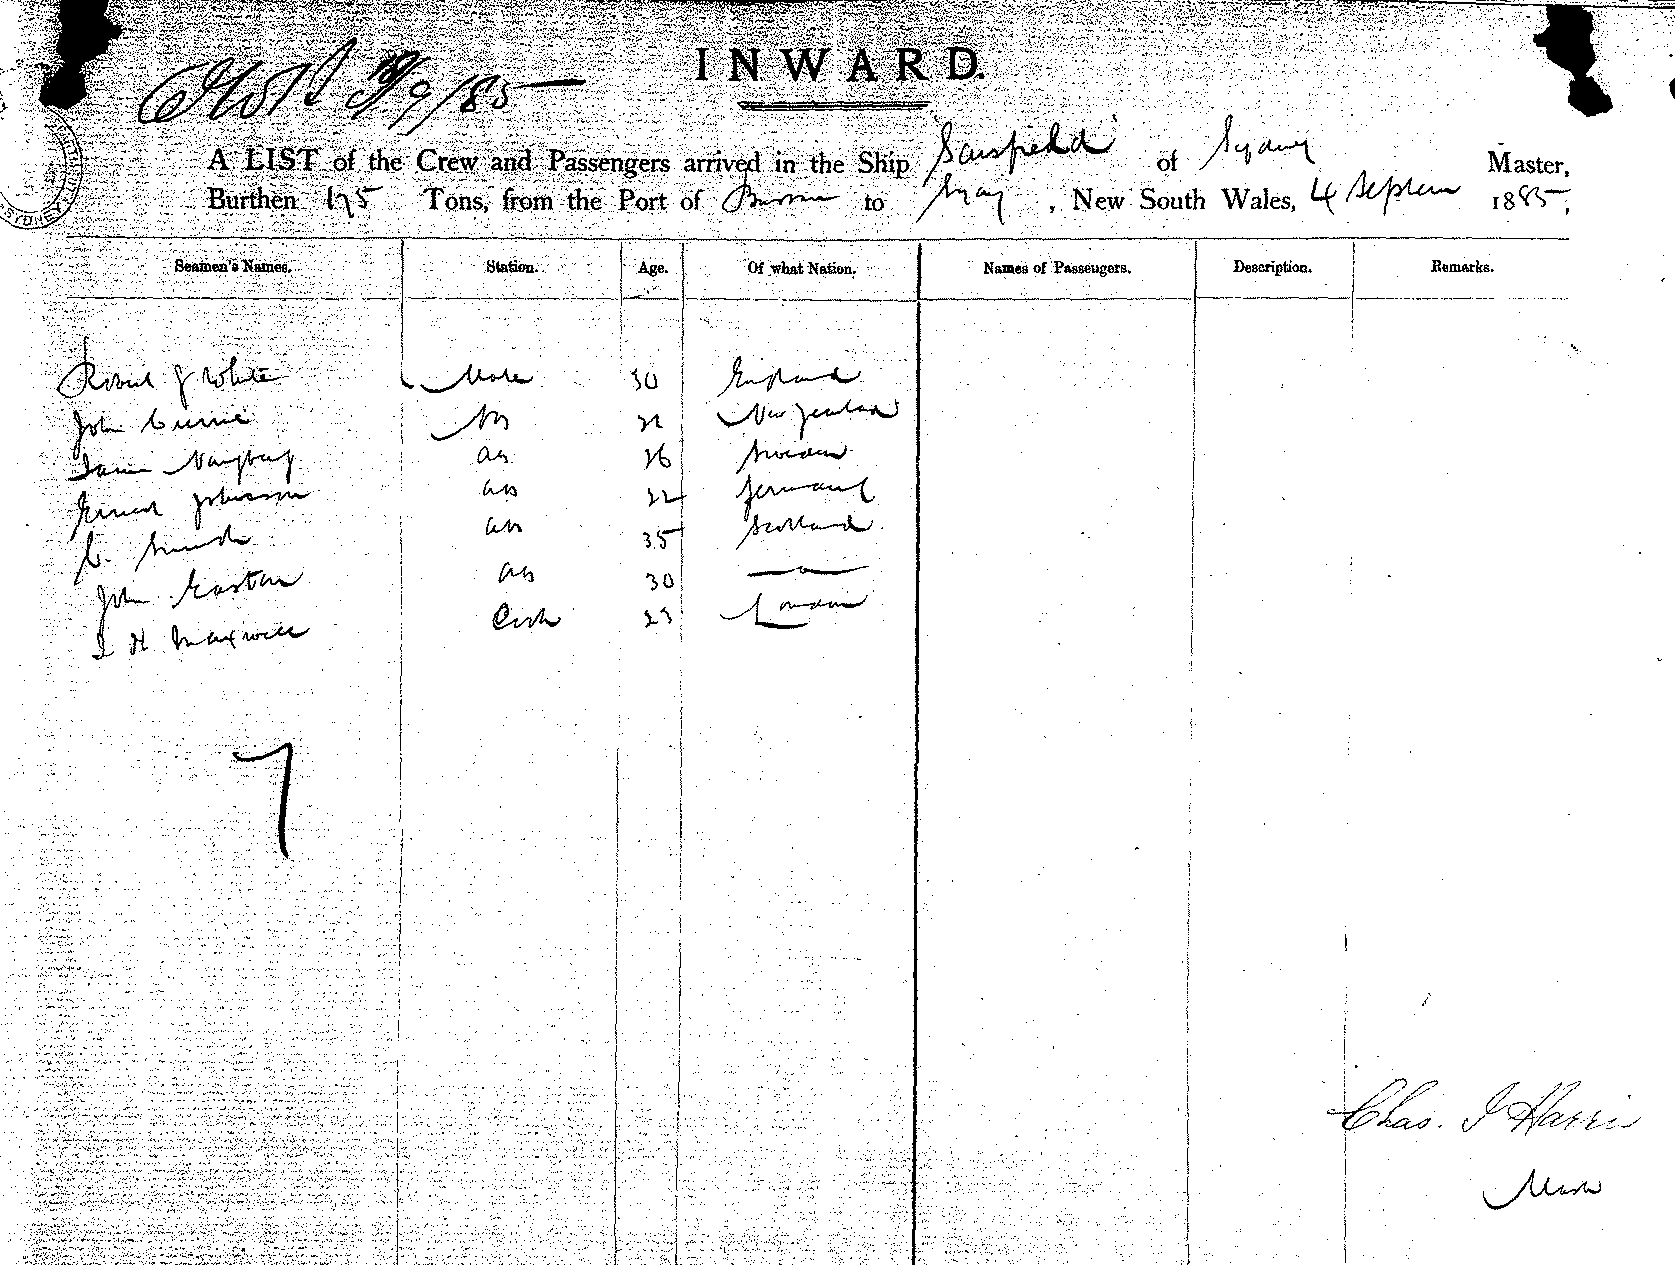 INWARD.
A LIST of the Crew and Passengers arrived in the Ship Sarsfield of Sydney Master,
Burthen 175 Tons, from the Port of to Sydney, New South Wales, 4 Septem 1885,
Seamen's Names. Station. Age. Of what Nation. Names of Passengers. Description. Remarks.
Robert J White Mate 30 England
John Currie AB New Zealand
AB 26 Sweden
Ernest Johnson AB 22 Germany
C. Smith AB 35 Scotland
John Easton AB 30 —"—
J H Maxwell Cook 23 London
7
Chas. J Harris
Master
SYDNEY